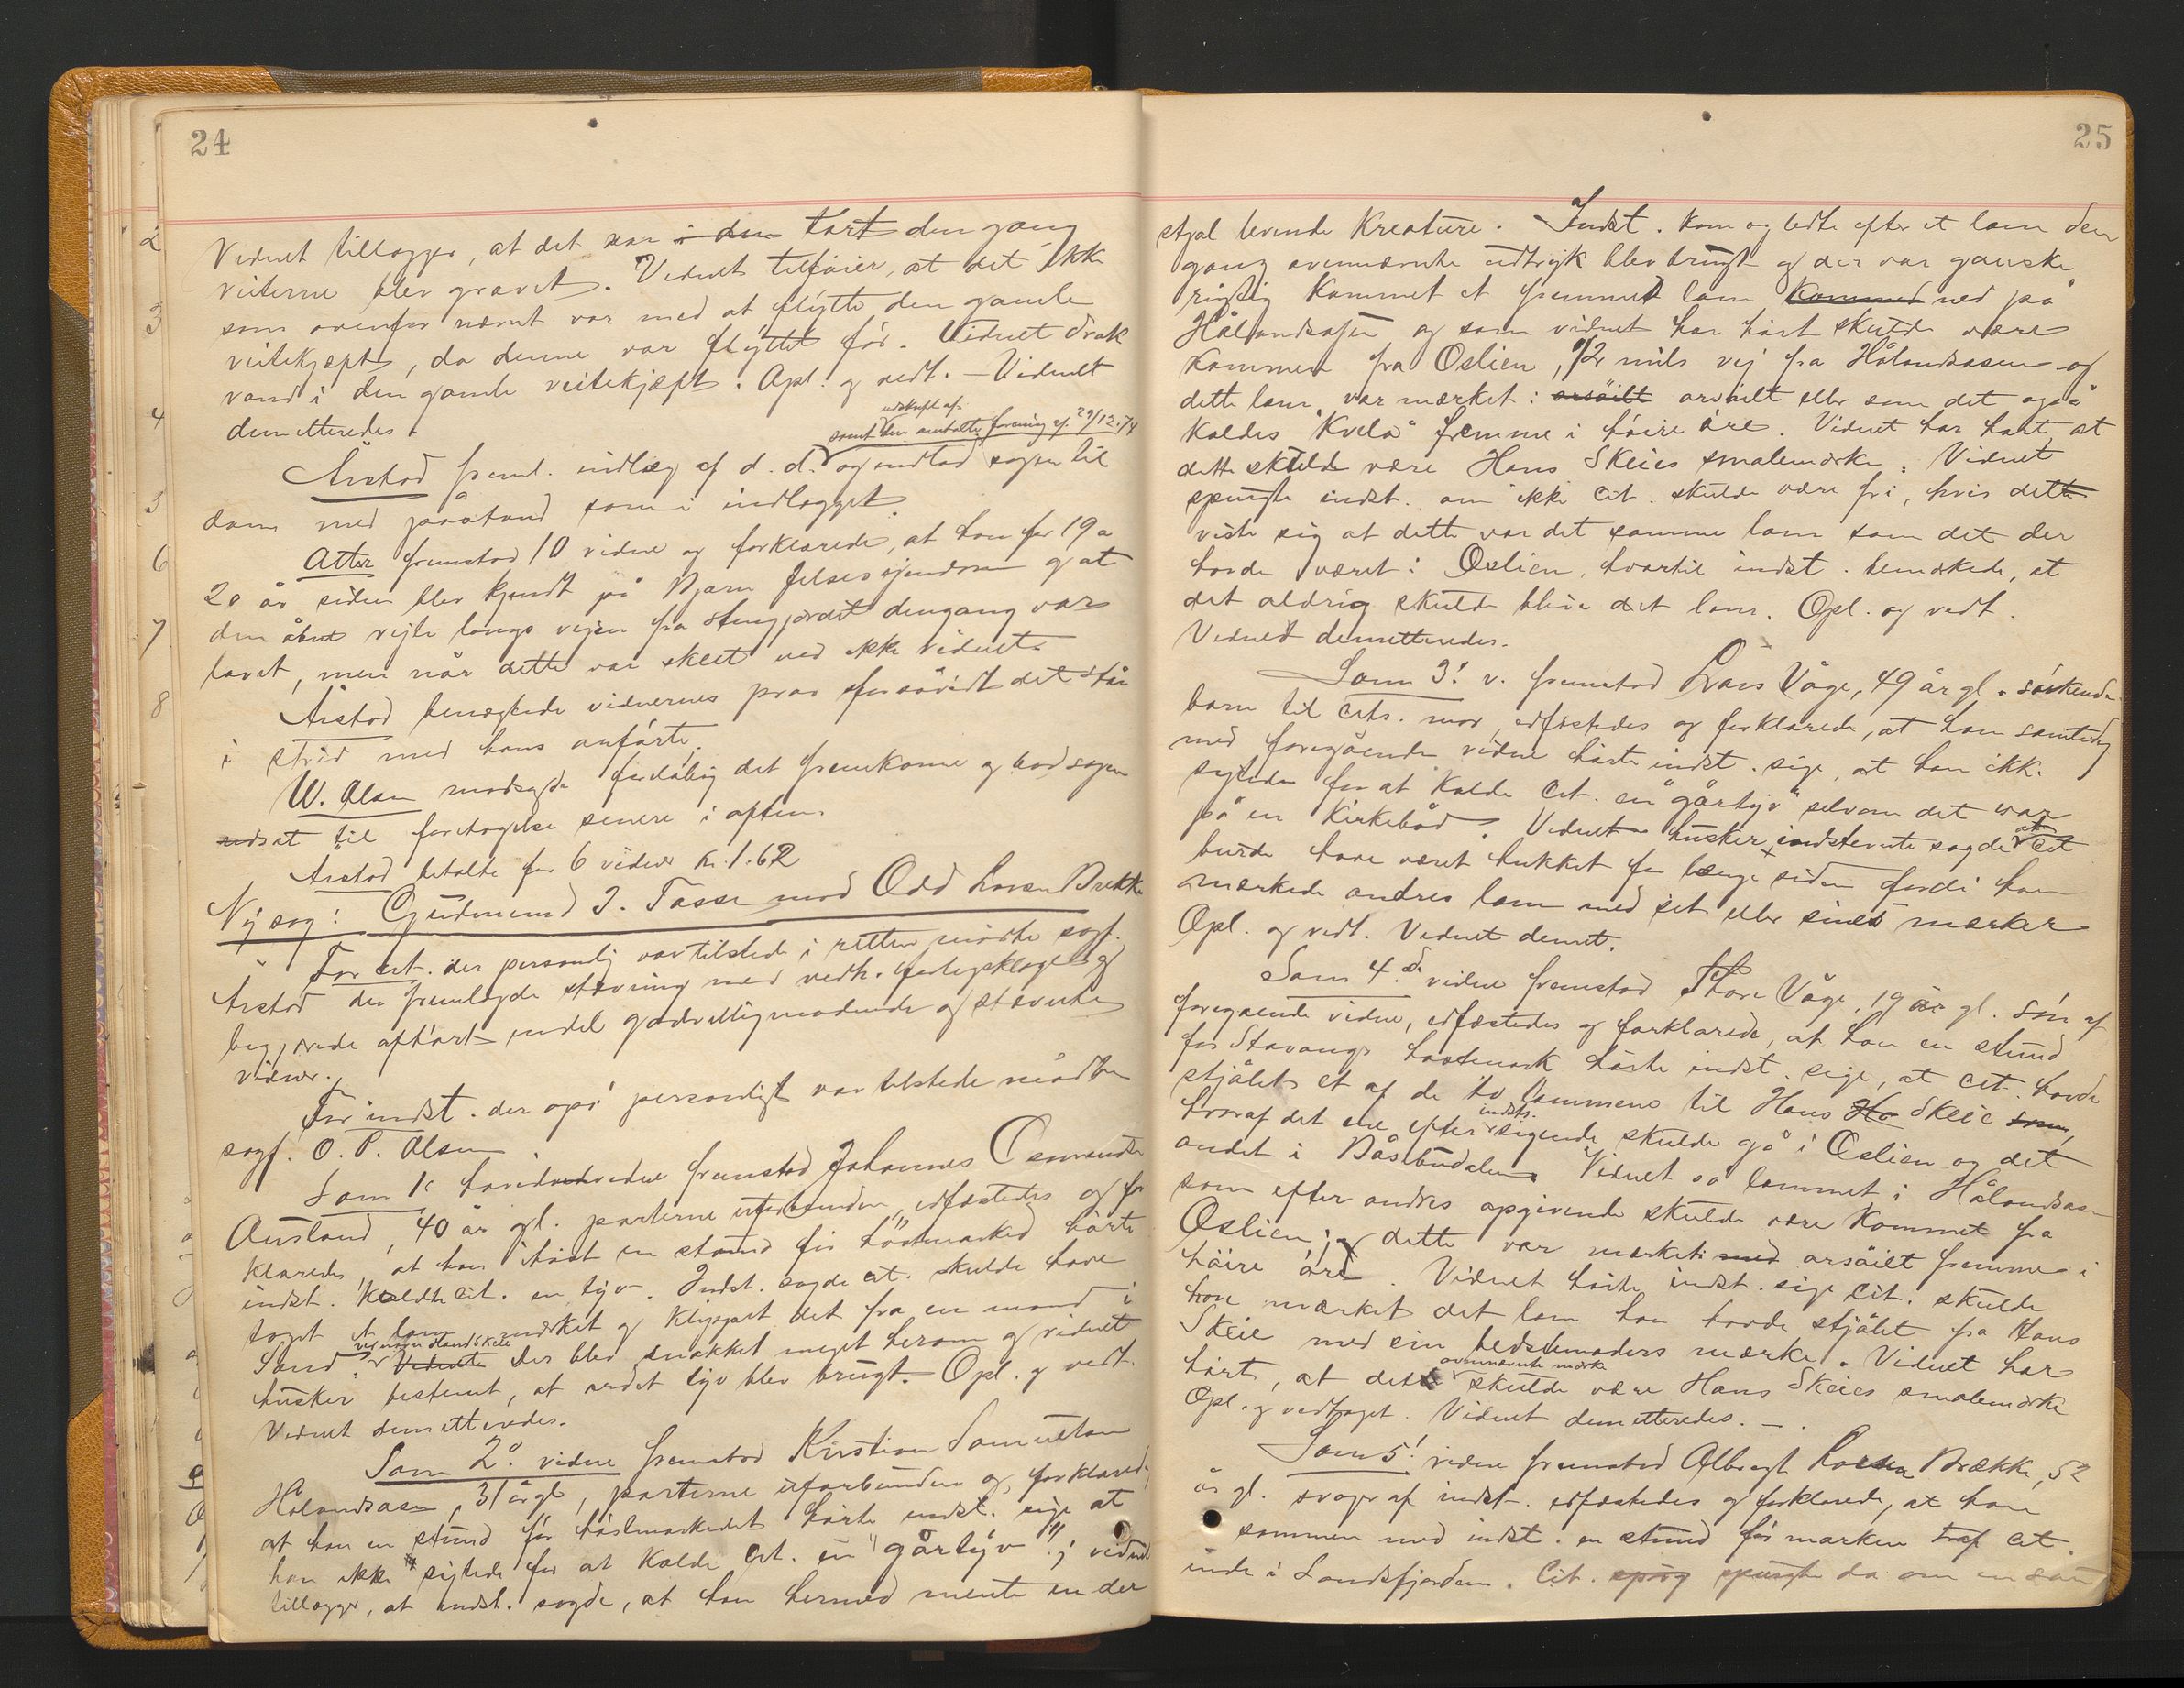 24
Vidnet tillægger, at det var i den tørt den gang
veiterne blev gravet. Vidnet tilføier, at det ikke
som ovenfor nævnt var med at flytte den gamle
veitekjæft, da denne var flyttet før. Vidnet drak
vand i den gamle veitekjæft. Opl. g vedt. – Vidnet
demitteredes.
udskrift af
samt den anholdte forening af 29/12.74
Årstad freml. indlæg af d. d. og indlod sagen til
dom med påstand som i indlægget.
Atter fremstod 10 vidne og forklarede, at han for 19 a
20 år siden blev kjendt på Bjarn Jelses ejendom g at
den åbne vejte langs vejen fra Stengjærdet dengang var
lavet, men når dette var skeet ved ikke vidnet.
Årstad benægtede vidnernes prov forsåvidt det står
i strid med hans anførte.
W. Olsen modsagde foreløbig det fremkomne og bad sagen
udsat til foretagelse senere i aften.
Årstad betalte for 6 vidner kr. 1.62
Ny sag: Gudmund J. Tasse mod Odd Larsen Brekke
For cit. der personlig var tilstede i retten mødte sagf.
Årstad der fremlagde stævning med vedh. forligsklage og
begjærede afhørt endel godvilligmødende og stævnte
vidner.
For indst. der også personligt var tilstede mødte
sagf. O. P. Olsen
Som 1e hovedvidne fremstod Johannes Osmundsen
Ausland, 40 år gl. parterne uforbunden, edfæstedes og for
klarede, at han i høst en stund før høstmarked hørte
indst. kaldte cit. en tyv. Indst. sagde cit. skulde have
taget et lam mærket g klippet det fra en mand i
Sand. Vidnet der blev snakket meget herom g vidnet
husker bestemt, at ordet tyv blev brugt. Opl. g vedt.
Vidnet demitteredes.
Som 2. vidne fremstod Kristian Samuelsen
Hålandsåsen, 31 år gl, parterne uforbunden og forklarede
at han en stund før høstmarkedet hørte indst. sige at
han ikke sigtede for at kalde Cit. en "gårtyv"; vidnet
tillægger, at indst. sagde, at han hermed mente en der
25
stjal levende kreature. Indst. kom og ledte efter et lam den
gang ovennævnte udtryk blev brugt og der var ganske
rigtig kommet et fremmed lam kommed ned på
Hålandsåsen og som vidnet har hørt skulde være
kommen fra Oslien, 1/2 mils vej fra Hålandsåsen og
dette lam var mærket: arsåilt arsåilt eller som det også
kaldes "Kvela" fremme i høire øre. Vidnet har hørt at
dette skulde være Hans Skeies smalemærke. Vidnet
spurgte indst. om ikke Cit. skulde være fri, hvis dette
viste sig at dette var det samme lam som det der
havde været i Oslien, hvortil indst. bemærkede, at
det aldrig skulde blive det lam. Opl. og vedt.
Vidnet demitteredes.
Som 3! v. fremstod Lars Våge, 49 år gl. søskende
barn til cits. mor, edfæstedes og forklarede, at han samtidig
med foregående vidne hørte indst. sige, at han ikke
sigtede for at kalde Cit. en "gårtyv" selvom det var
på en Kirkebåd. Vidnet husker indstevnte sagde at Cit
burde have været hukket for længe siden fordi han
mærkede andres lam med sit eller sines mærker
Opl. og vedt. Vidnet demit.
Som 4. vidne fremstod Thore Våge, 19 år gl. søn af
foregående vidne, edfæstedes og forklarede, at han en stund
før Stavangr høstmark hørte indst. sige, at cit. havde
stjålet et af de to lammene til Hans Ho Skeie som,
hvoraf det ene efter indsts. sigende skulde gå i Oslien og det
andet i Båsbudalen. Vidnet så lammet i Hålandsåsen
som efter andres opgivende skulde være kommet fra
Oslien; og dette var mærket med arsåilt fremme i
høire øre. Vidnet hørte indst. sige Cit. skulde
have mærket det lam han havde stjålet fra Hans
Skeie med sin bedstemoders mærke. Vidnet har
hørt, at dette ovennævnte mærke skulde være Hans Skeies smalemærke
Opl. g vedtaget. Vidnet demitteredes. –
Som 5! vidne fremstod Albregt Larsen Brække, 52
år gl. svoger af indst. edfæstedes og forklarede, at han
sammen med indst. en stund før marken traf cit.
inde i Sandsfjorden. Cit. spurg spurgte da om en sau